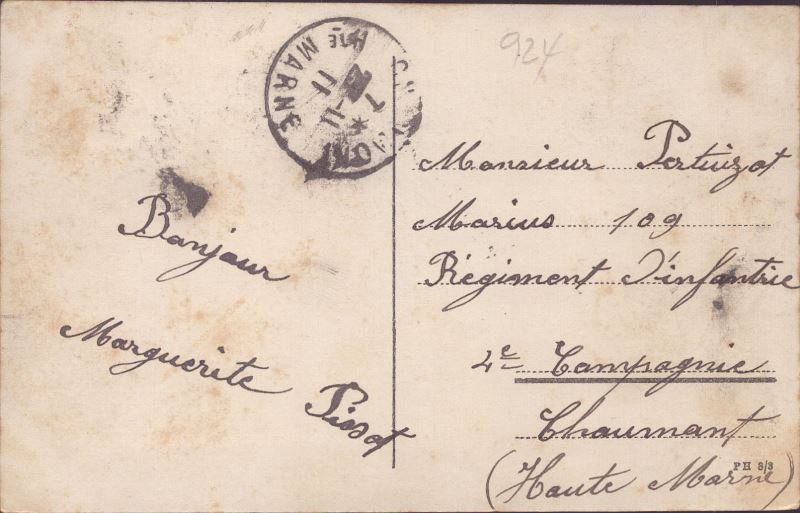 924
Hte MARNE
7 - 11
11
Bonjour
Marguerite Pissot
Monsieur Pertuizot
Marius 109
Régiment d'infantrie
4e Compagnie
Chaumont
(Haute Marne)
PH 8/3